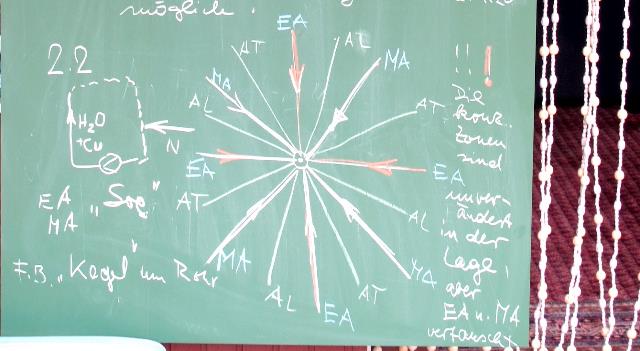 möglich.
2.2
H₂O
+Cu
N
EA „Sog"
MA
F.B. „Kegel" um Rohr
EA
AL
MA
AT
EA
AL
MA
AT
EA
AL
MA
AT
EA
AL
MA
AT
!! !
Die
konz.
zonen
sind
unver-
ändert
in der
Lage,
aber
EA u. MA
vertauscht